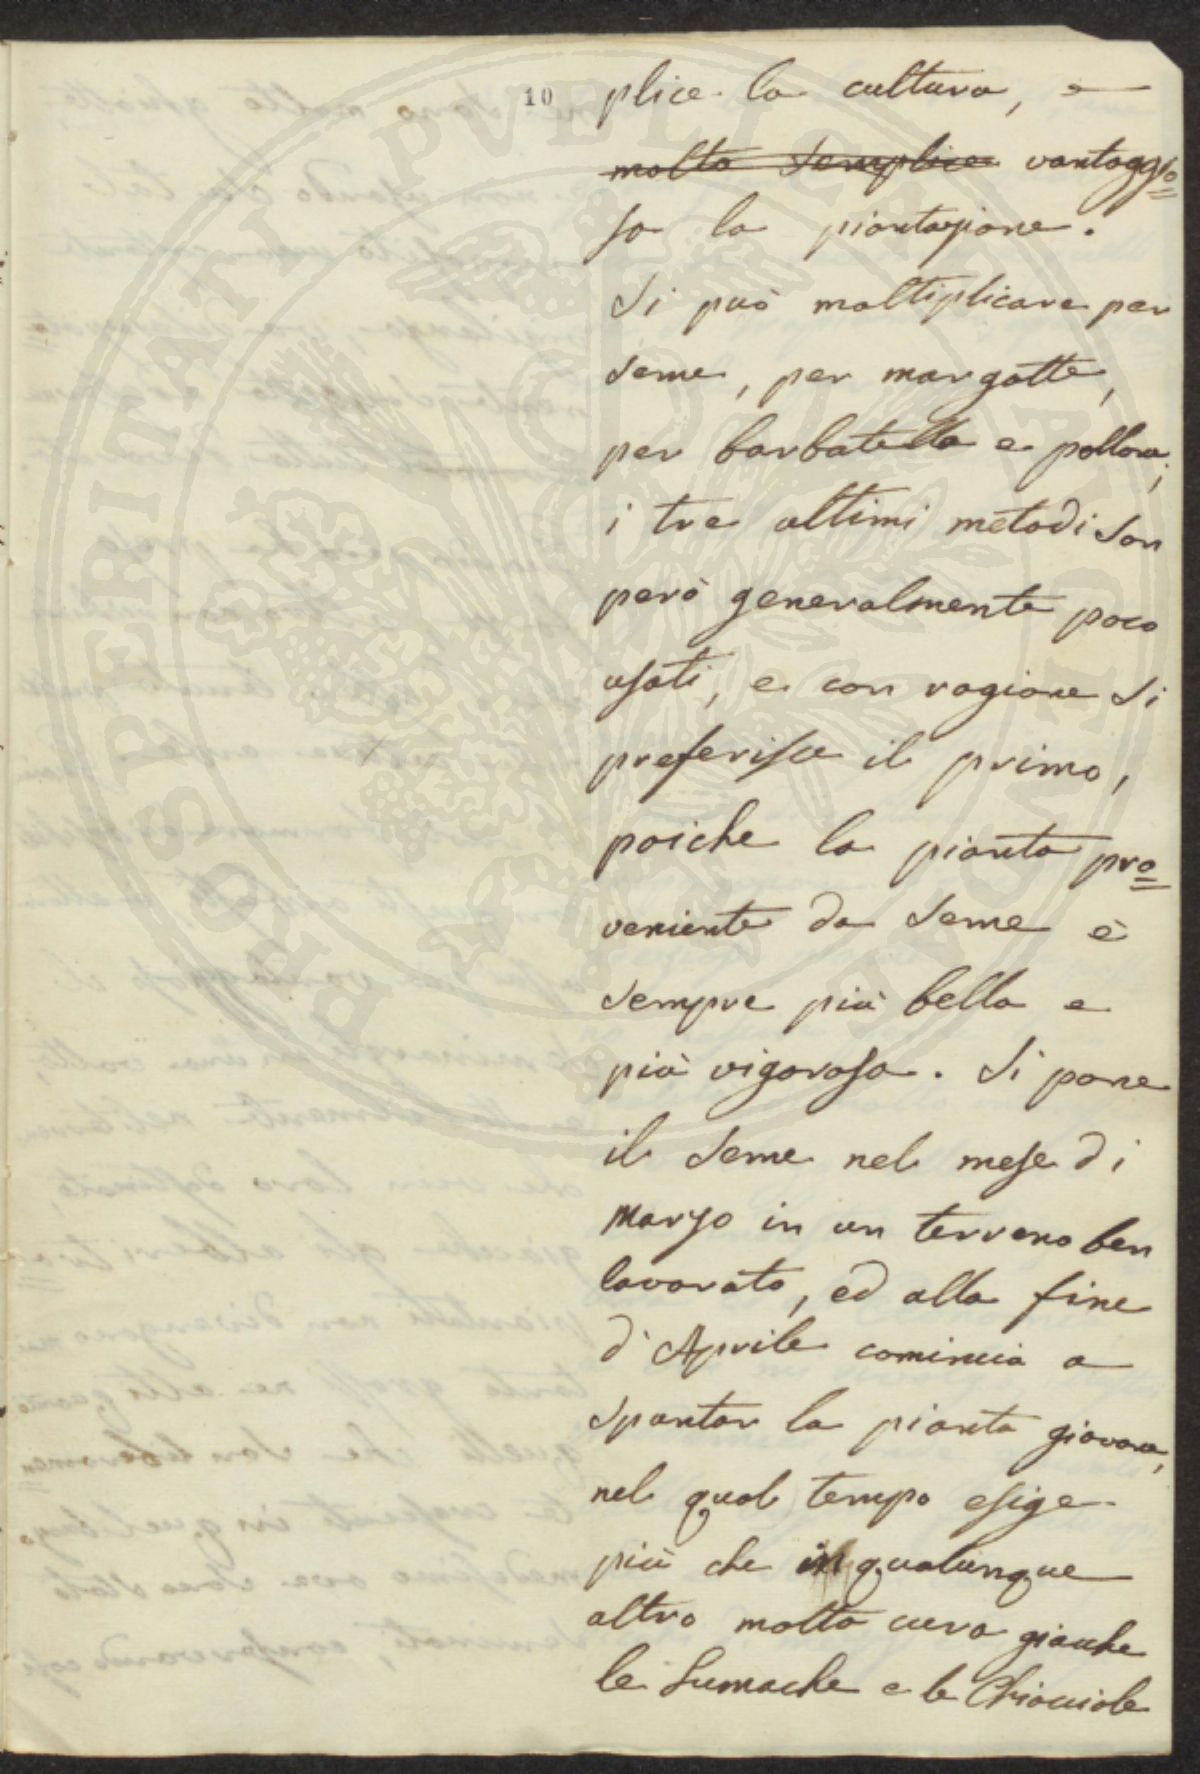 10
plice la cultura, e
molto semplice vantaggio=
sa la piantagione.
Si può moltiplicare per
seme, per margotte,
per barbatella e pollone;
i tre ultimi metodi son
però generalmente poco
usati, e con ragione si
preferisce il primo,
poiche la pianta pro=
veniente da seme è
sempre più bella e
più vigorosa. Si pone
il seme nel mese di
Marzo in un terreno ben
lavorato, ed alla fine
d'Aprile comincia a
spontar la pianta giovane,
nel qual tempo esige
più che in qualunque
altro molta cura giacche
le Lumache e le Chiocciole
PROSPERITATI PVBLICAE AVGENDAE